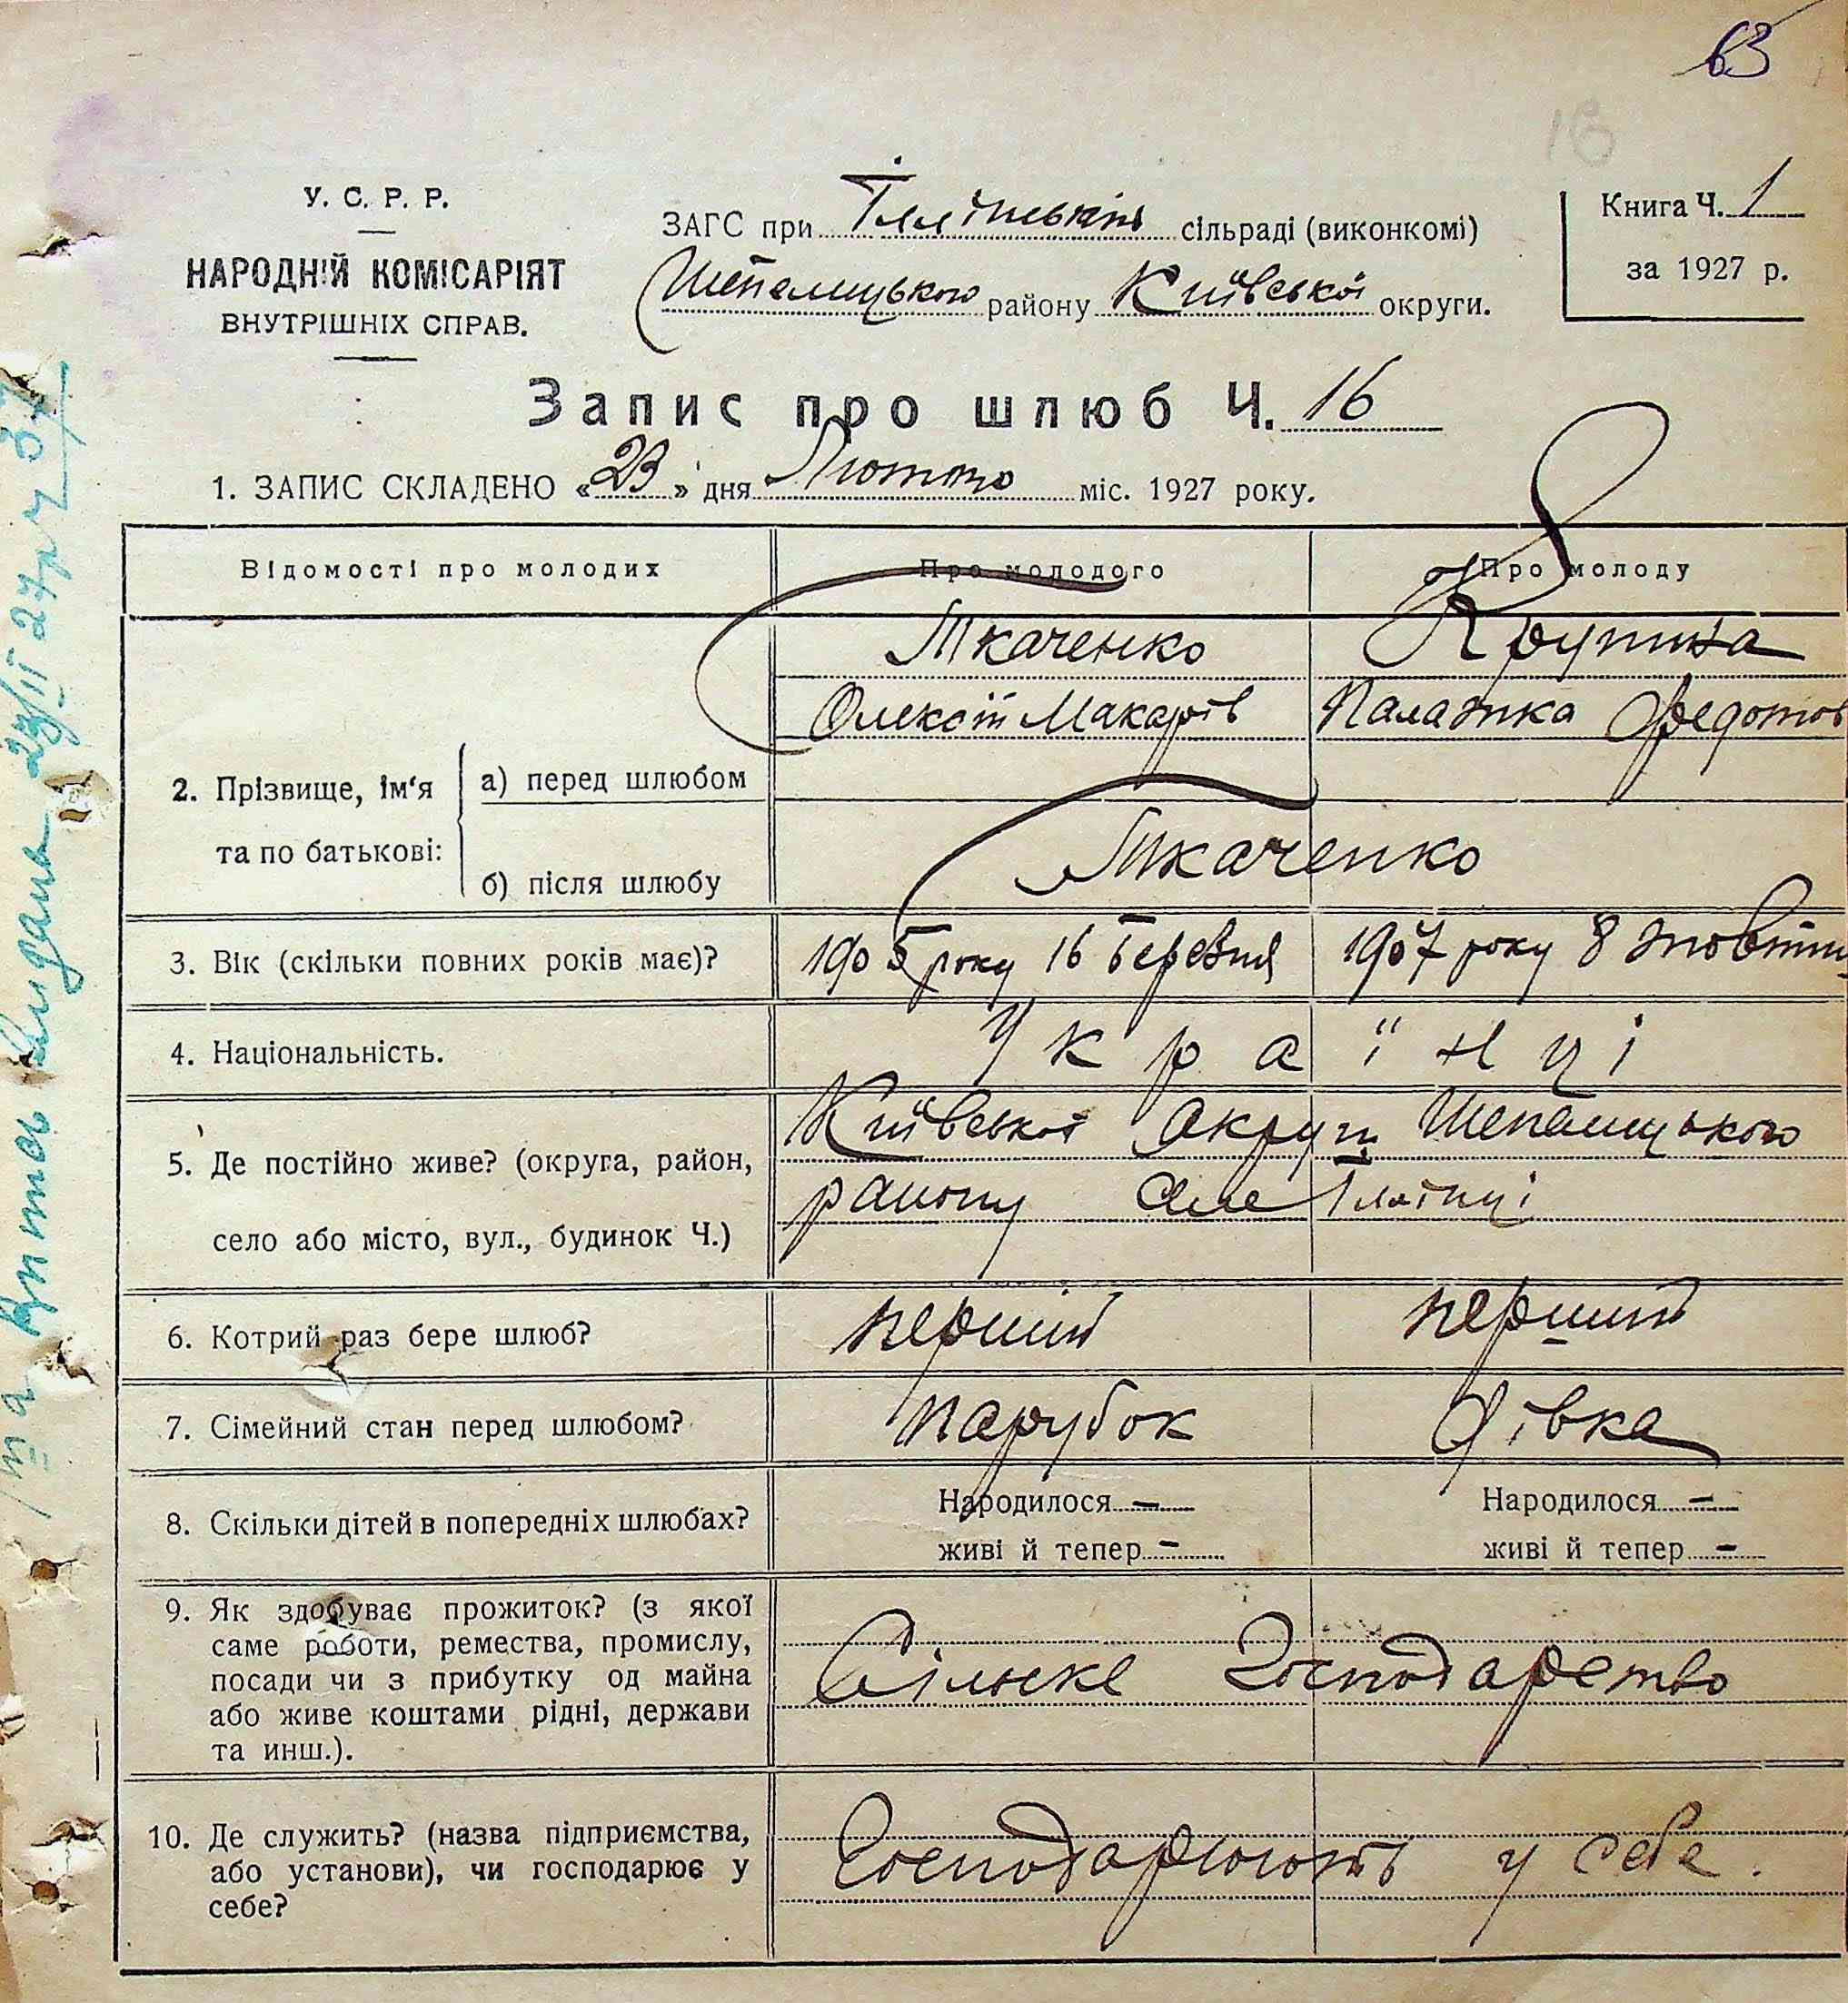 63
18
У. С. Р. Р.
НАРОДНІЙ КОМІСАРІЯТ
ВНУТРІШНІХ СПРАВ.
ЗАГС при Іллінській сільраді (виконкомі)
Шепелицького району Київської округи.
Книга Ч. 1
за 1927 р.
Запис про шлюб Ч. 16
1. ЗАПИС СКЛАДЕНО «23» дня Лютого міс. 1927 року.
Відомості про молодих Про молодого Про молоду
Ткаченко Крупка
Олексій Макарів Палажка Федотов
2. Прізвище, ім'я та по батькові:
а) перед шлюбом
б) після шлюбу Ткаченко
3. Вік (скільки повних років має)? 1905 року 16 Березня 1907 року 8 жовтн
4. Національність. Українці
5. Де постійно живе? (округа, район, село або місто, вул., будинок Ч.) Київської Округи Шепелицького
району село Іллінці
6. Котрий раз бере шлюб? перший перший
7. Сімейний стан перед шлюбом? парубок дівка
8. Скільки дітей в попередніх шлюбах? Народилося — Народилося —
живі й тепер - живі й тепер —
9. Як здобуває прожиток? (з якої
саме роботи, ремества, промислу,
посади чи з прибутку од майна
або живе коштами рідні, держави
та инш.). Сільске Господарство
10. Де служить? (назва підприємства,
або установи), чи господарює у
себе? Господарюють у себе.
Випись Видана 23/II 27р Ч 37